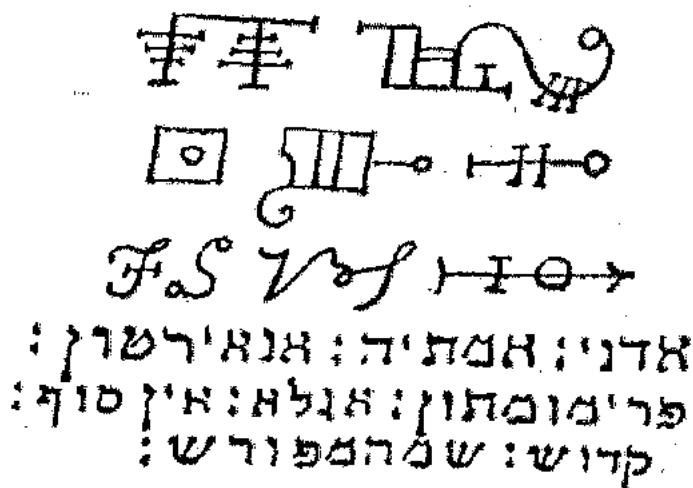 אדני: אמתיה: אנאירטון:
פרימומתון: אגלא: אין סוף:
קדוש: שמהמפורש: